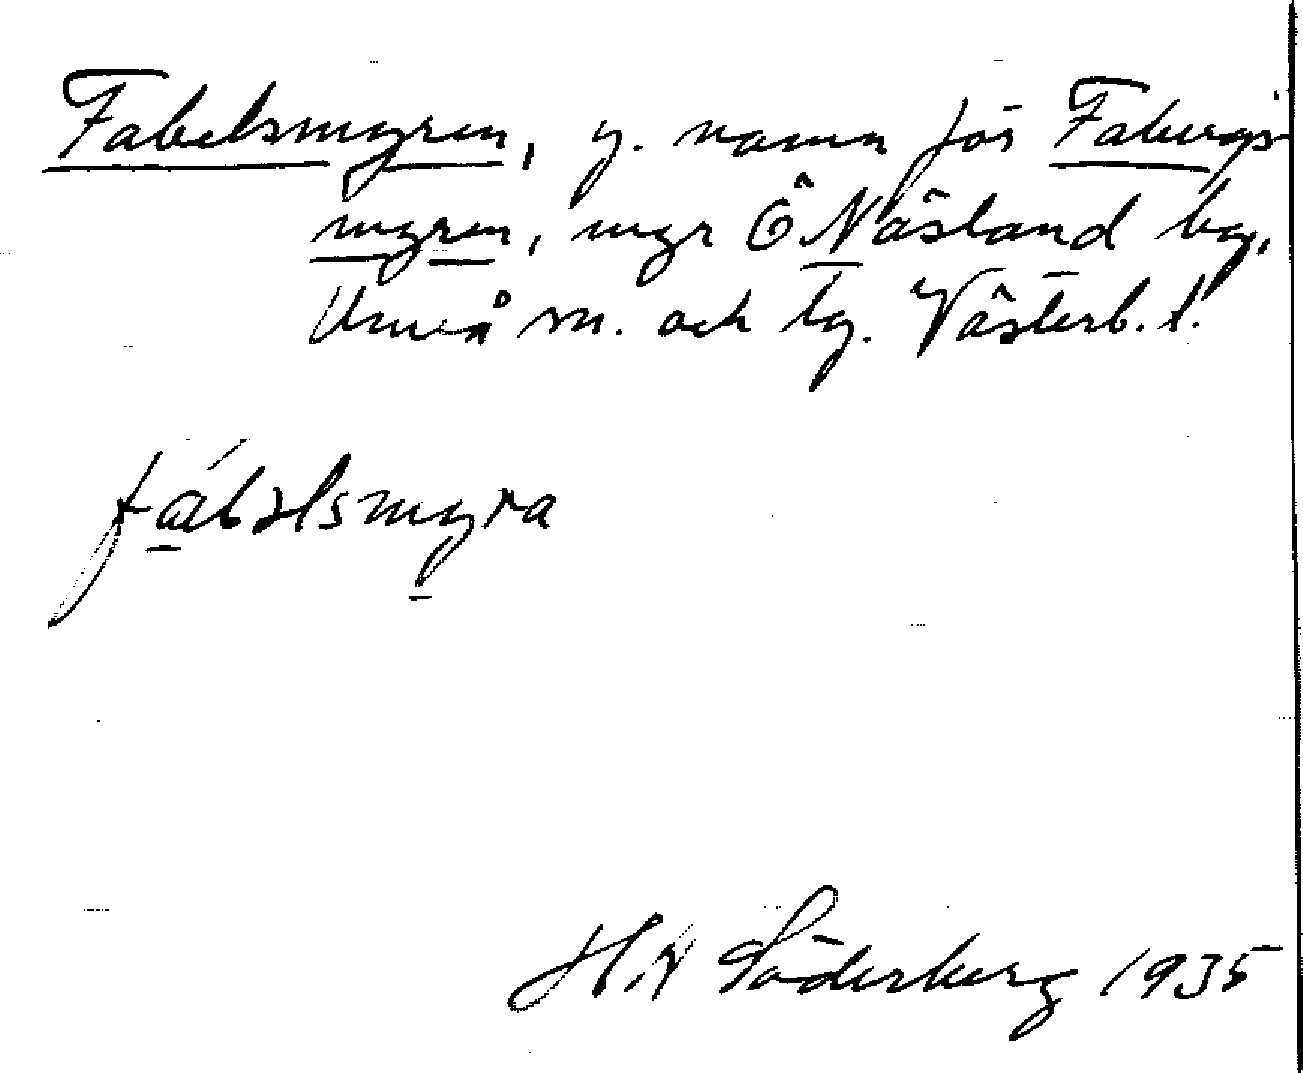 Fabelsmyren, y. namn för Fabergs-
myren, myr ÖNäsland by,
Umeå sn. och tg. Västerb. l.
fábəlsmyra
H N Söderberg 1935